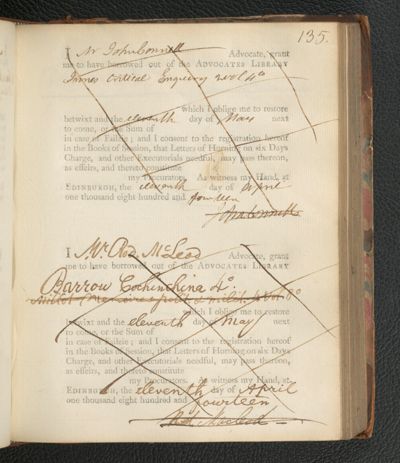 135.
I Mr John Connell Advocate, grant
me to have borrowed out of the ADVOCATES LIBRARY
Innes Critical Enquiry 2 vol 4o
which I oblige me to restore
betwixt and the eleventh day of May next
to come, or the Sum of
in case of Failzie; and I consent to the registration hereof
in the Books of Session, that Letters of Horning on six Days
Charge, and other Executorials needful, may pass thereon,
as effeirs, and thereto constitute
my Procurators. As witness my Hand, at
EDINBURGH, the eleventh day of April
one thousand eight hundred and fourteen
John Connell
I Mr Rod. McLeod Advocate, grant
me to have borrowed out of the ADVOCATES LIBRARY
Barrow Cochinchina 4o.
which I oblige me to restore
betwixt and the eleventh day of May next
to come, or the Sum of
in case of Failzie; and I consent to the registration hereof
in the Books of Session, that Letters of Horning on six Days
Charge, and other Executorials needful, may pass thereon,
as effeirs, and thereto constitute
my Procurators. As witness my Hand, at
EDINBURGH, the eleventh day of April
one thousand eight hundred and fourteen